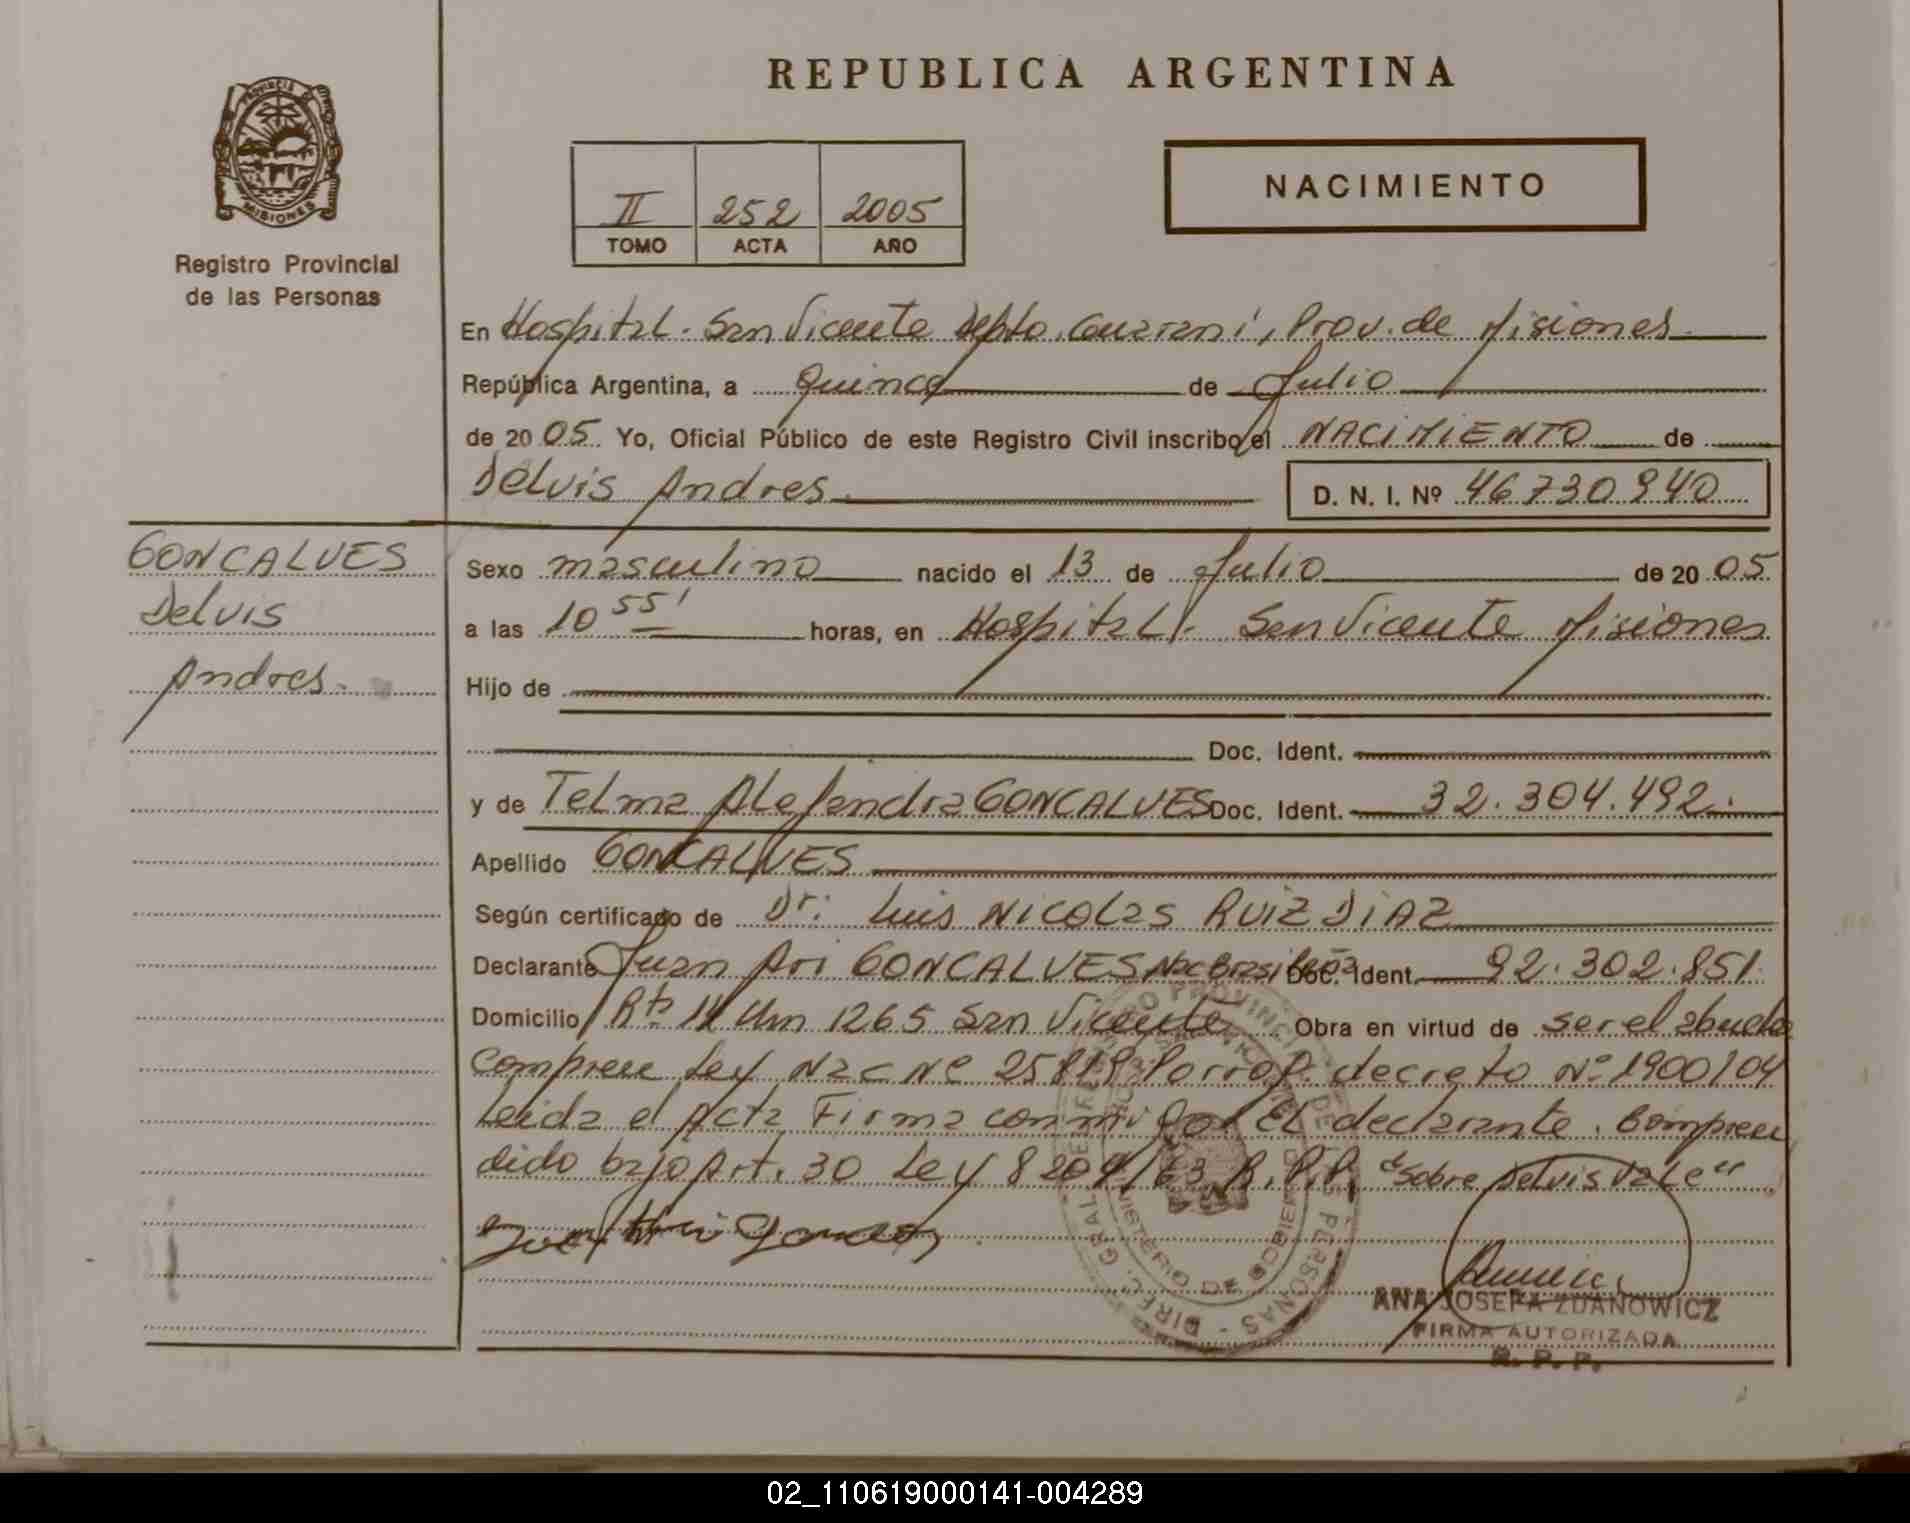 REPUBLICA ARGENTINA
PROVINCIA DE MISIONES
Registro Provincial
de las Personas
II 252 2005
TOMO ACTA AÑO
NACIMIENTO
En Hospital. San Vicente Depto. Guarani, Prov. de Misiones
República Argentina, a Quince de Julio
de 2005 Yo, Oficial Público de este Registro Civil inscribo el NACIMIENTO de
Delvis Andres. D. N. I. Nº 46730940
GONCALVES
Delvis
Andres.
Sexo masculino nacido el 13 de Julio de 2005
a las 10 55' horas, en Hospital. San Vicente Misiones
Hijo de
Doc. Ident.
y de Telma Alejandra GONCALVES Doc. Ident. 32.304.492.
Apellido GONCALVES
Según certificado de Dr: Luis Nicolas RUIZ DIAZ
Declarante Juan Ari GONCALVES Nac Brasileña Doc. Ident. 92.302.851.
Domicilio Rta 14 Km 1265 San Vicente Obra en virtud de ser el abuelo
Compren Ley Nac Nº 25819 Porrog. decreto Nº 1900/04
Leida el Acta Firma conmigo El declarante. Compren
dido bajo Art. 30 Ley 8204/63 R.P.P. "Sobre Delvis Vale"
ANA JOSEFA ZDANOWICZ
FIRMA AUTORIZADA
R. P. P.
02_110619000141-004289